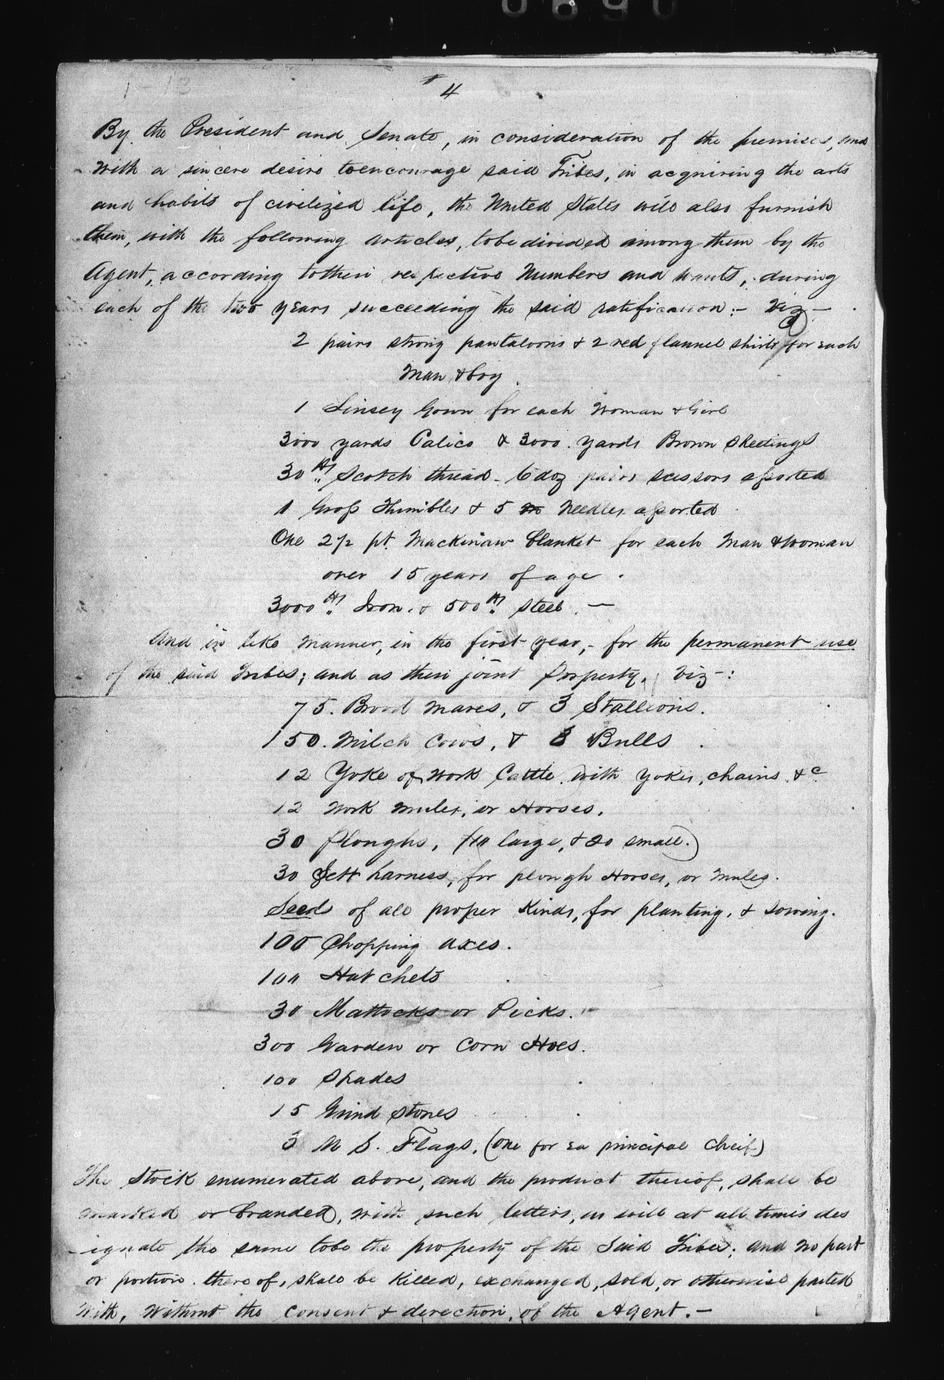 4
By the President and Senate, in consideration of the premises, and
with a sincere desire to encourage said Tribes, in acquiring the arts
and habits of civilized life, the United States will also furnish
them, with the following articles, to be divided among them by the
Agent, according to their respective Numbers and wants, during
each of the two years succeeding the said ratification:- Viz-
2 pairs strong pantaloons & 2 red flannel shirts for each
Man & boy.
1 Linsey Gown for each Woman & Girl
3000 yards Calico & 3000. yards Brown Sheetings
30 lbs Scotch thread - 6 doz pairs scissors assorted
1 Gross Thimbles & 5 m Needles assorted
One 2½ pt. Mackinaw blanket for each Man & Woman
over 15 years of age.
3000 lbs Iron, & 500 lbs Steel. -
And in like manner, in the first year,- for the permanent use
of the said Tribes; and as their joint Property, Viz-:
75. Brood Mares, & 3 Stallions.
150. Milch Cows, & 8 Bulls
12 Yoke of Work Cattle with yokes, chains &c
12 Work Mules, or Horses.
30 Ploughs, (10 large, & 20 small.)
30 Sett harness, for plough Horses, or Mules.
Seeds of all proper Kinds, for planting, & sowing.
100 Chopping axes.
100 Hatchets
30 Mattocks or Picks.
300 Garden or Corn Hoes.
100 Spades
15 Grind stones
3 U. S. Flags, (one for ea principal Cheif)
The Stock enumerated above, and the product thereof, shall be
marked or branded, with such letters, as will at all times des
-ignate the same to be the property of the Said Tribes; and no part
or portion thereof, shall be killed, exchanged, sold, or otherwise parted
with, without the consent & derection, of the Agent.-